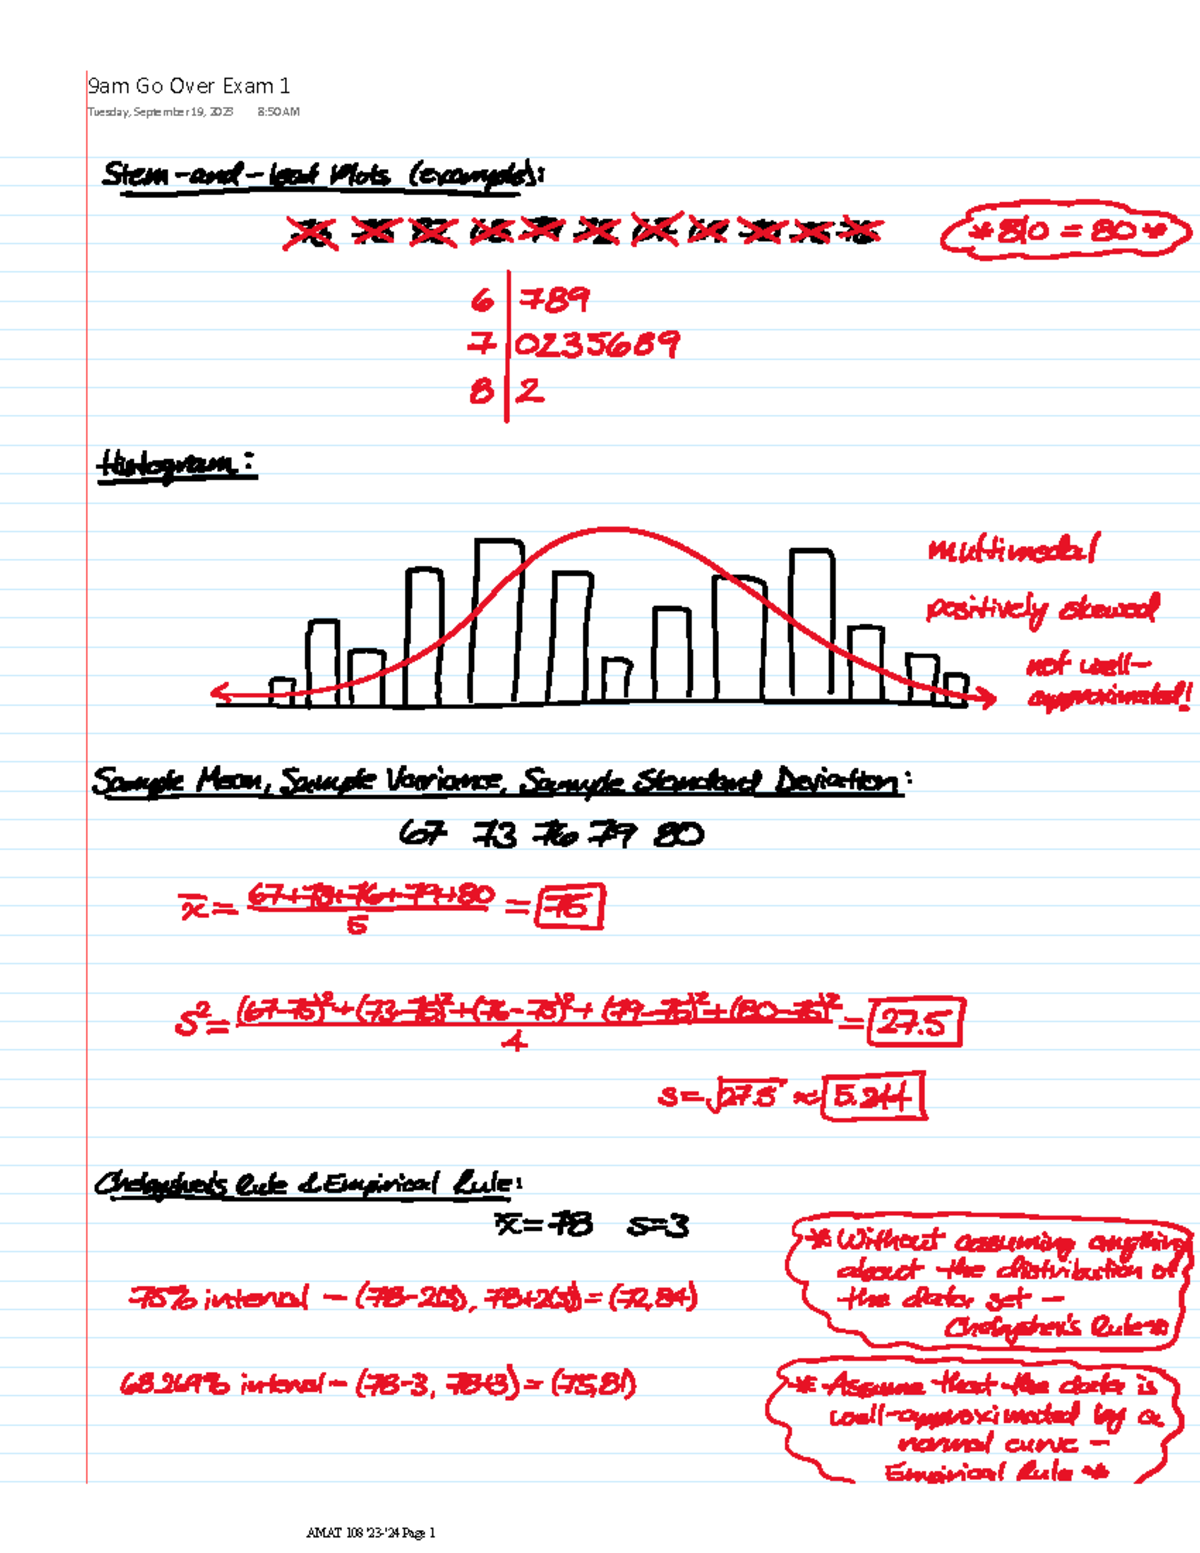 9am Go Over Exam 1
Tuesday, September 19, 2023 8:50 AM
Stem-and-leaf Plots (example):
*8|0 = 80*
6 | 789
7 | 0235689
8 | 2
Histogram:
multimodal
positively skewed
not well-
approximated!
Sample Mean, Sample Variance, Sample Standard Deviation:
67 73 76 79 80
x̄ = (67+73+76+79+80)/5 = 75
s² = ((67-75)²+(73-75)²+(76-75)²+(79-75)²+(80-75)²)/4 = 27.5
s = √27.5 ≈ 5.244
Chebyshev's Rule & Empirical Rule:
x̄ = 78 s=3
75% interval - (78-2(3), 78+2(3)) = (72,84)
*Without assuming anything
about the distribution of
the data set -
Chebyshev's Rule*
68.269% interval - (78-3, 78+3) = (75,81)
* Assume that the data is
well-approximated by a
normal curve -
Empirical Rule *
AMAT 108 '23-'24 Page 1